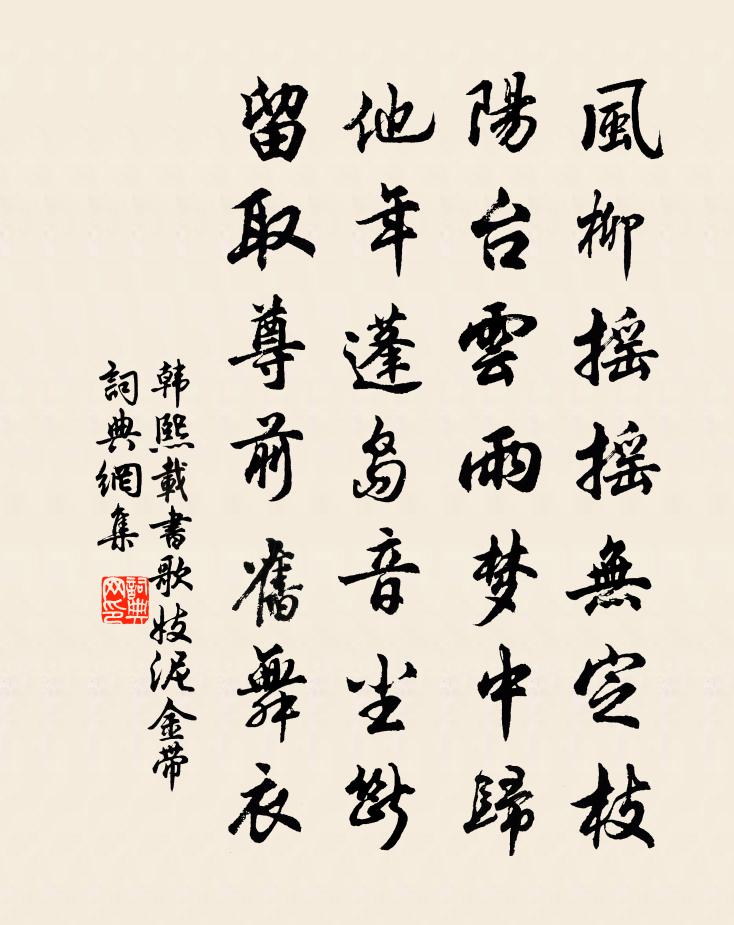 風柳摇摇無定枝
陽台雲雨梦中歸
他年蓬島音尘断
留取尊前舊舞衣
韩熙載書歌妓泥金带
詞典網集
詞典
网印